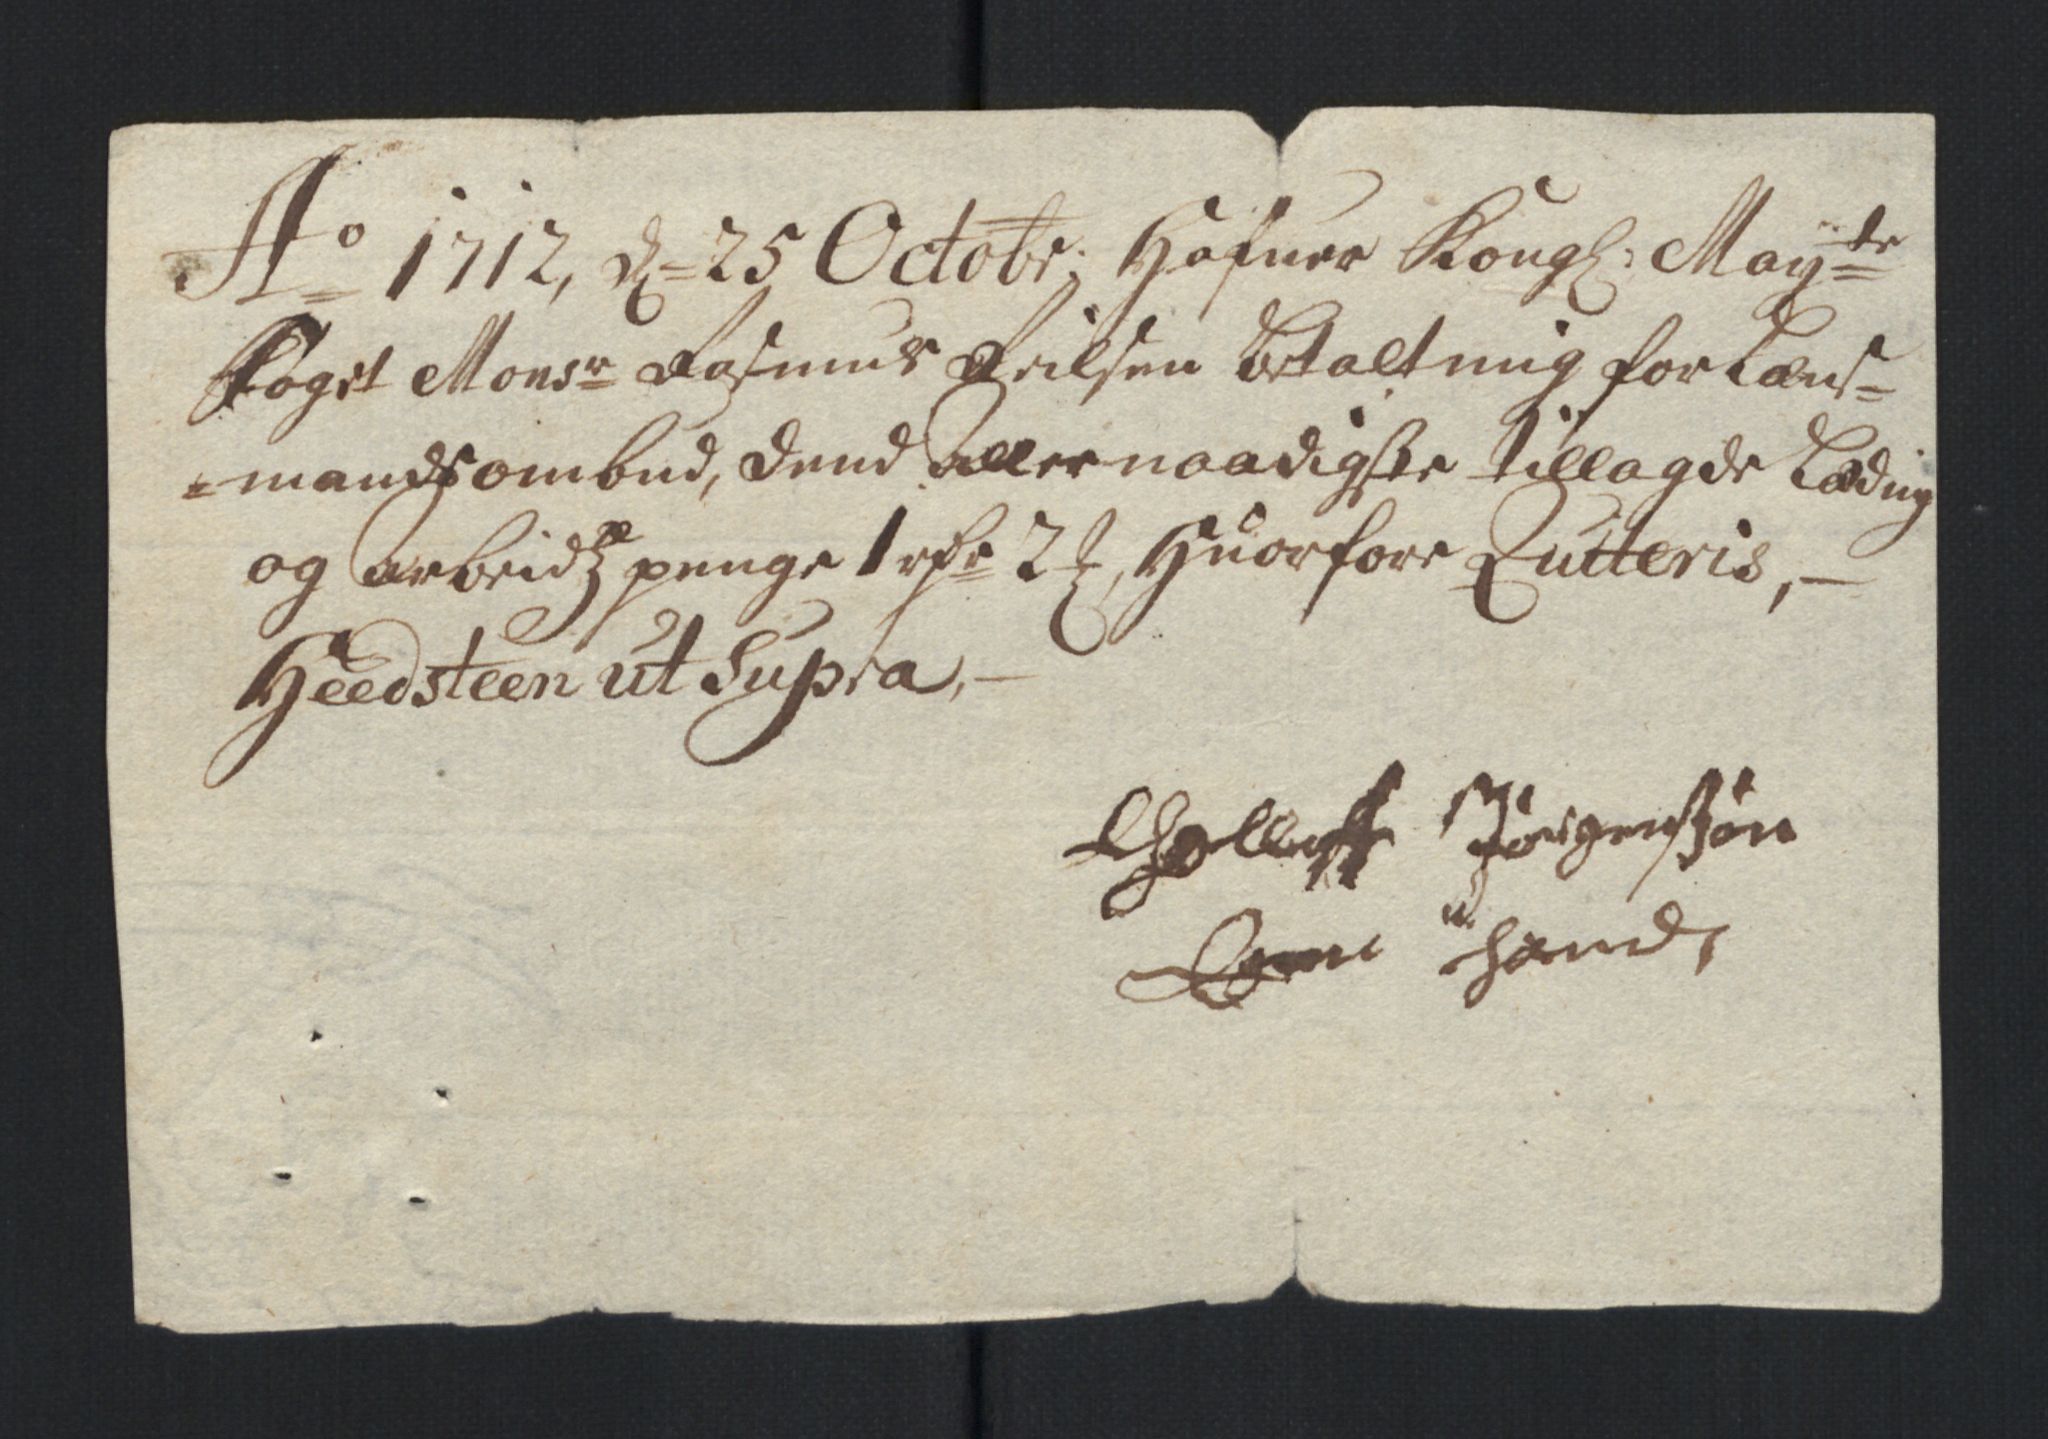 Ao 1712, d. 25 Octobr; Hafuer Kongl: Mayts
Foget Monsr Rasmus Neilsen betalt mig for Læns=
=mandsombud, dend aller naadigste tillagde Læding
og arbeids penge 1 rdr 2 ß, Huorfore Quiteris,
Heedsteen ut Supra,
Tholluff Jörgensßön
Egen hand,